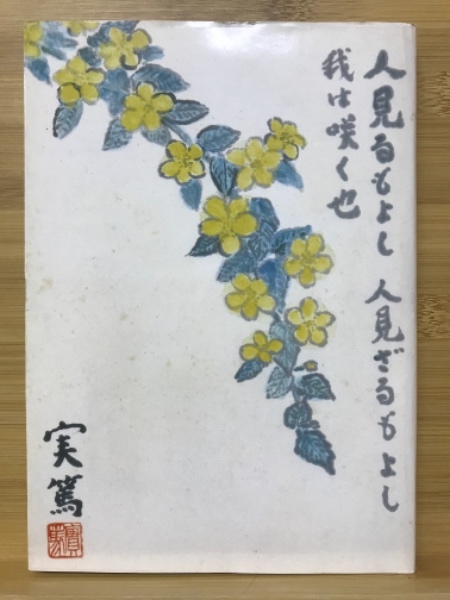 人見るもよし 人見ざるもよし
我は咲く也
実篤
實篤